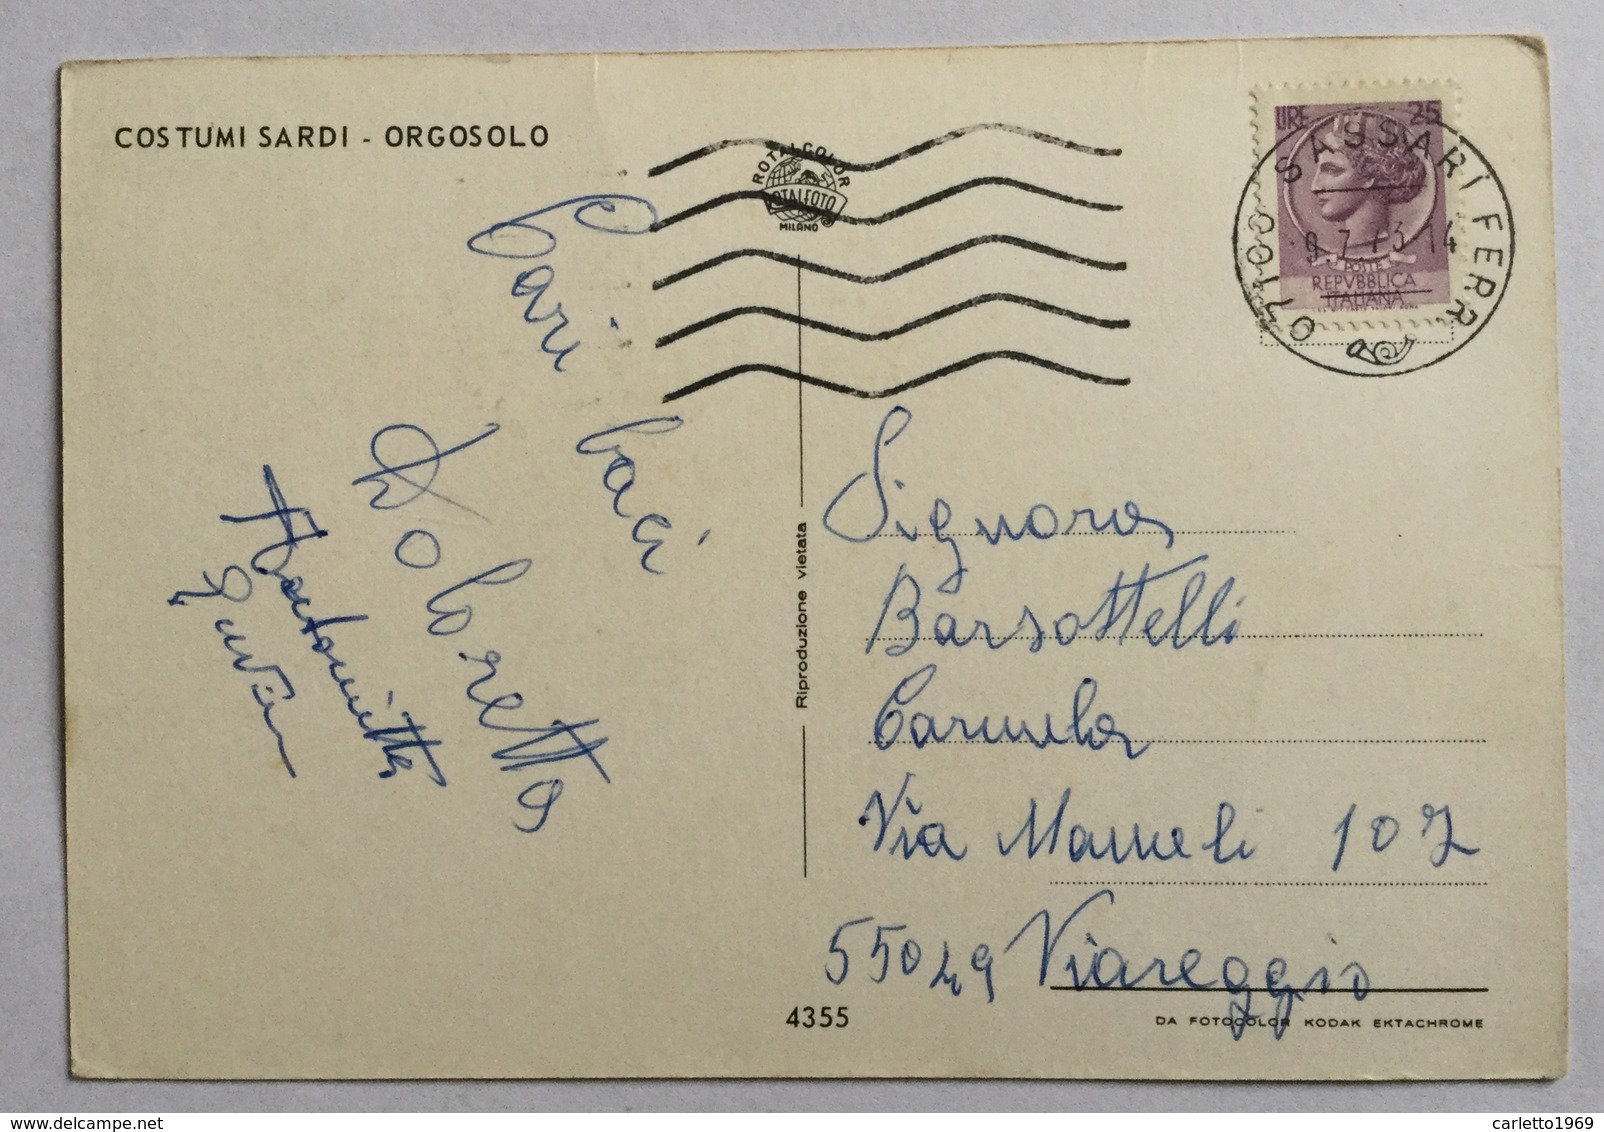 COSTUMI SARDI - ORGOSOLO
ROTALCOLOR
ROTALFOTO
MILANO
LIRE 25
POSTE
REPVBBLICA
ITALIANA
SASSARI FERR
07100
9.7.73 14
Cari
baci
Doloretta
Antonietta
Riproduzione vietata
Signora
Barsottelli
Carmela
Via Mameli 107
55049 Viareggio
4355
DA FOTOCOLOR KODAK EKTACHROME
carletto1969